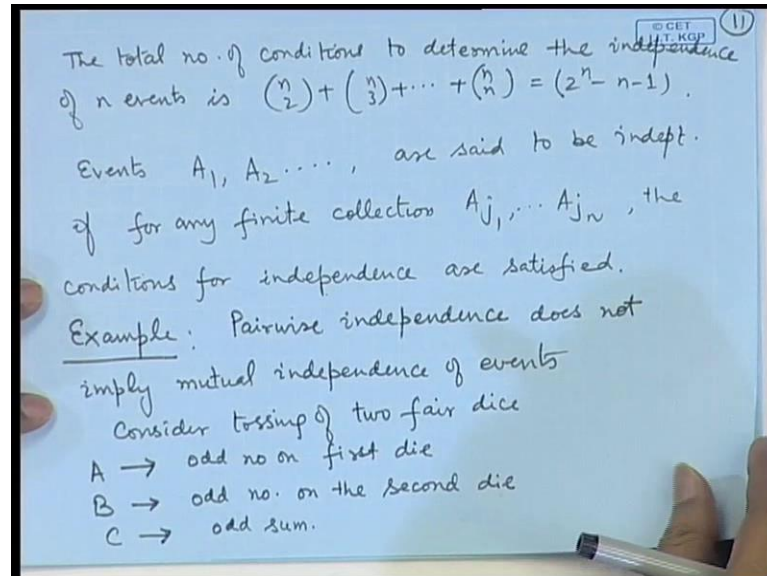 © CET
I.T. KGP
11
The total no. of conditions to determine the independence
of n events is (n 2) + (n 3) + ... + (n n) = (2^n - n - 1).
Events A1, A2 ...., are said to be indept.
if for any finite collection Aj1, ... Ajn, the
conditions for independence are satisfied.
Example: Pairwise independence does not
imply mutual independence of events
Consider tossing of two fair dice
A → odd no on first die
B → odd no. on the second die
C → odd sum.